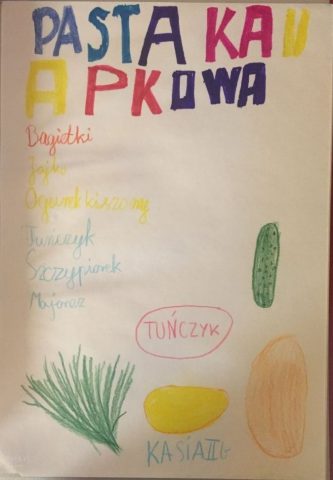 PASTA KAN
APKOWA
Bagietki
Jajko
Ogórek kiszony
Tuńczyk
Szczypiorek
Majonez
TUŃCZYK
KASIA II G